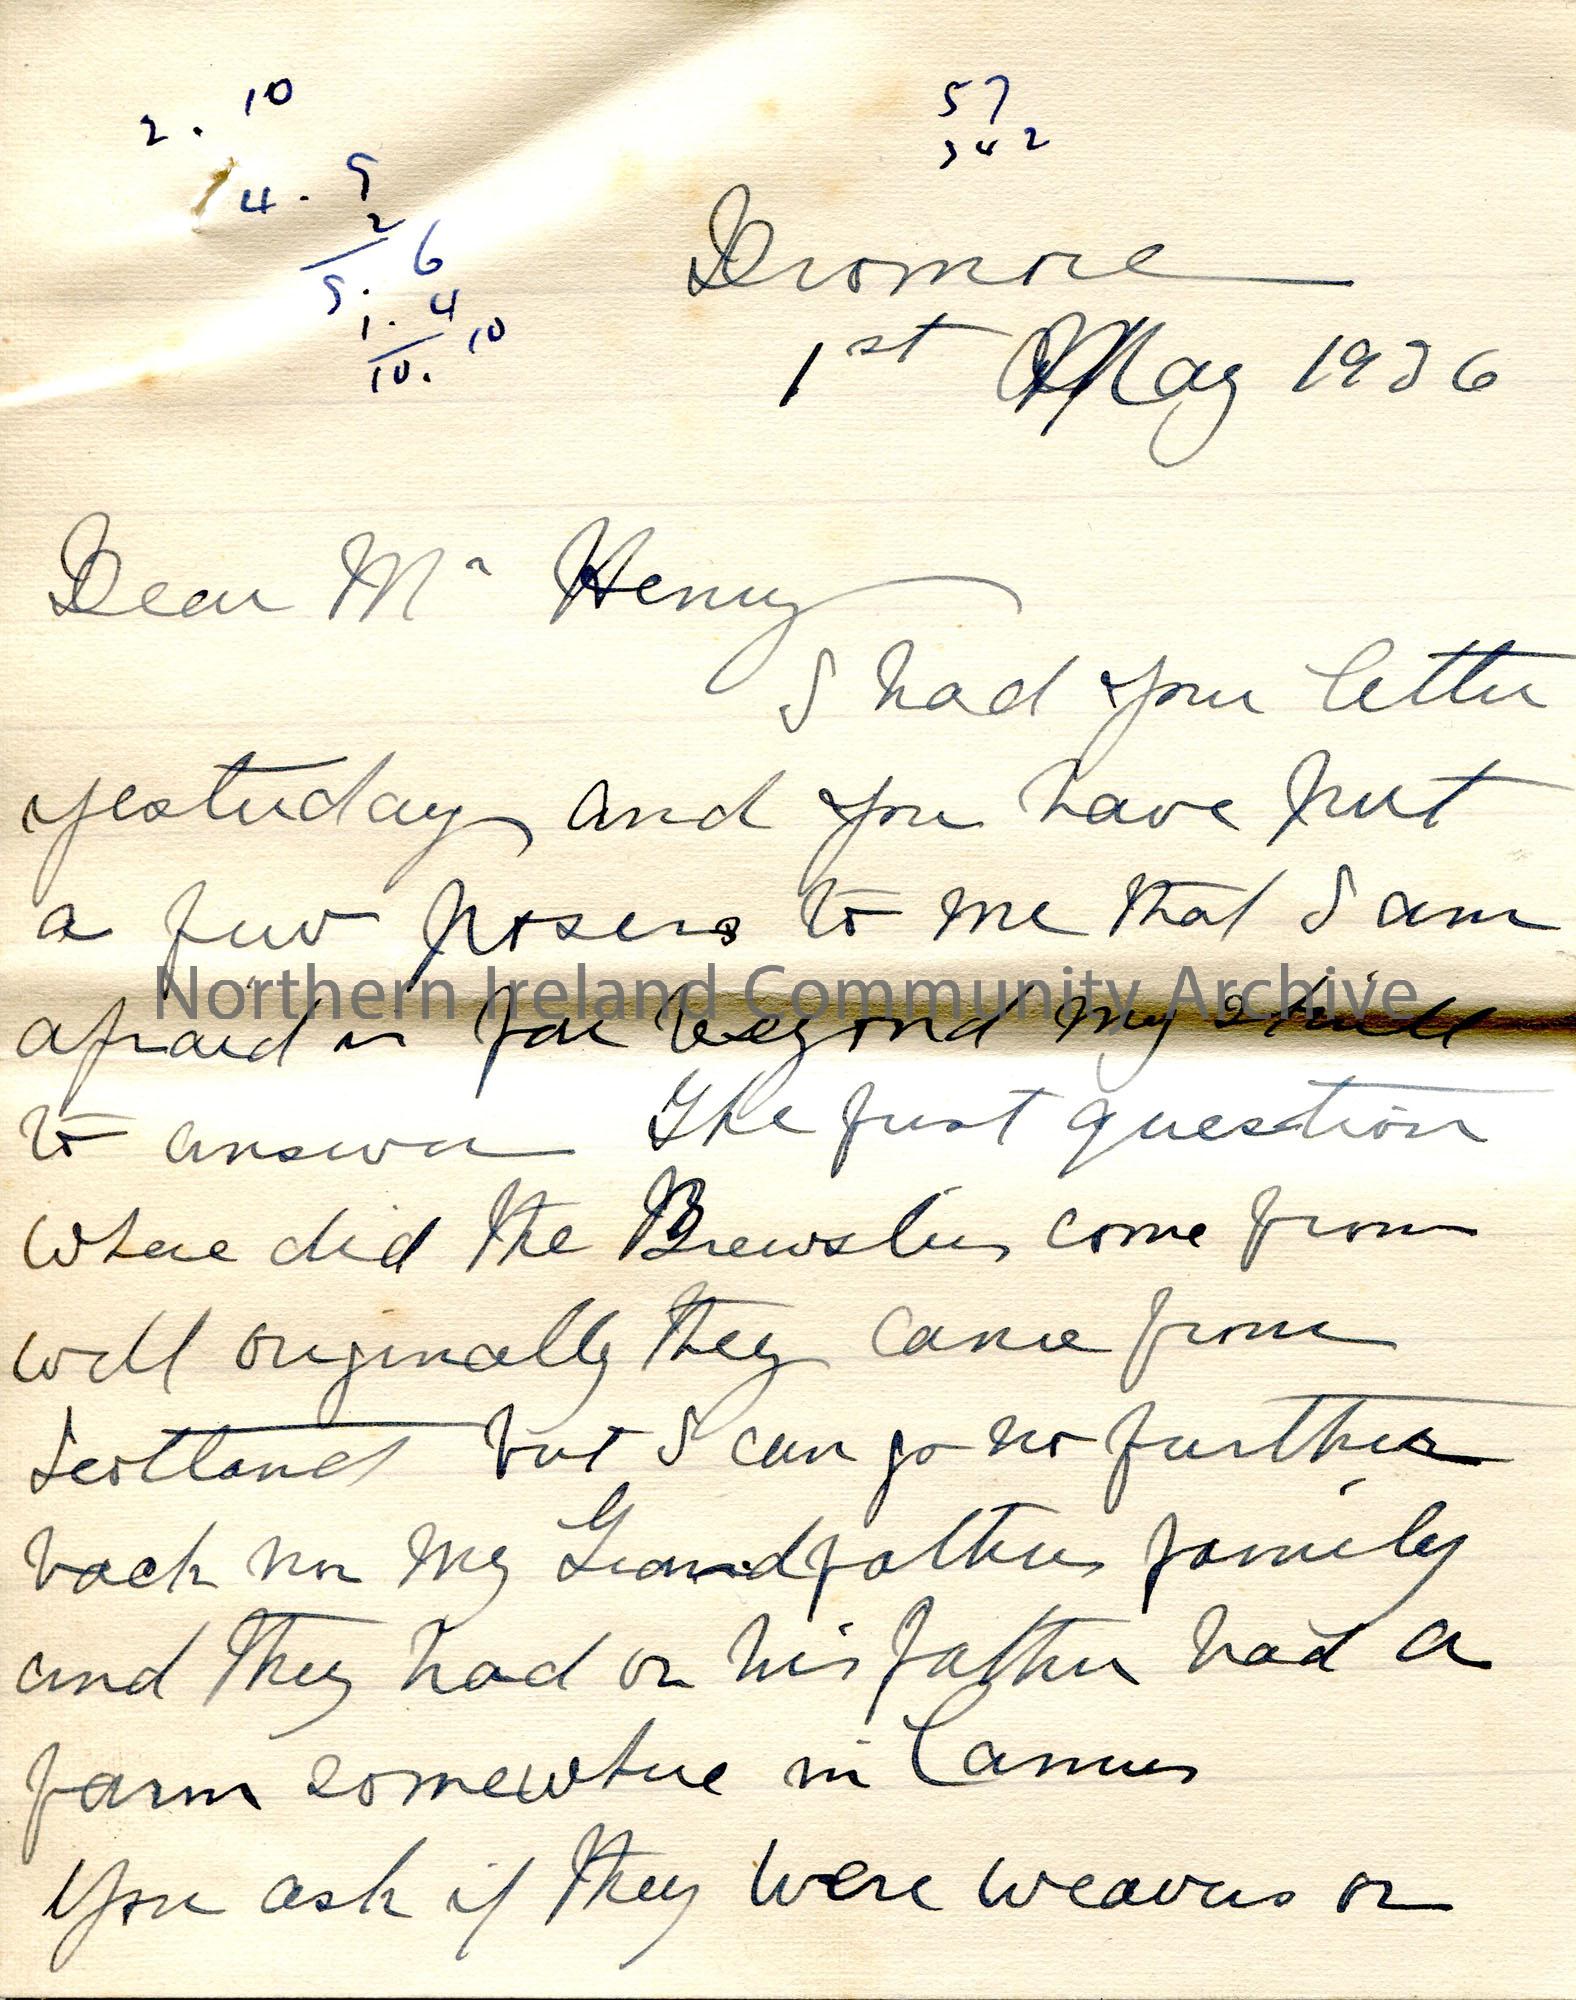 2 . 10
4 . 5
2
5 . 6
1 . 4
10 . 10
57
342
Dromore
1st May 1936
Dear Mr Henry
I had your letter
yesterday and you have put
a few posers to me that I am
Northern Ireland Community Archive
afraid is far beyond my skill
to answer The first question
where did the Brewsters come from
well originally they came from
Scotland but I can go no further
back nor my Grandfathers family
and they had or his father had a
farm somewhere in Camus
You ask if they were weavers or